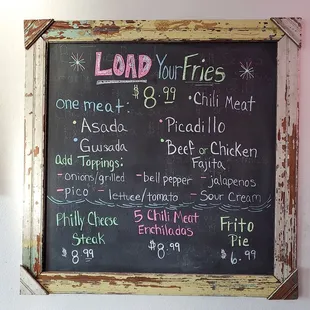 LOAD Your Fries
one meat: $8.99 • Chili Meat
• Asada • Picadillo
• Gusada • Beef or Chicken Fajita
Add Toppings:
- onions/grilled - bell pepper - jalapenos
- pico - lettuce/tomato - Sour Cream
Philly Cheese Steak
$8.99
5 Chili Meat Enchiladas
$8.99
Frito Pie
$6.99